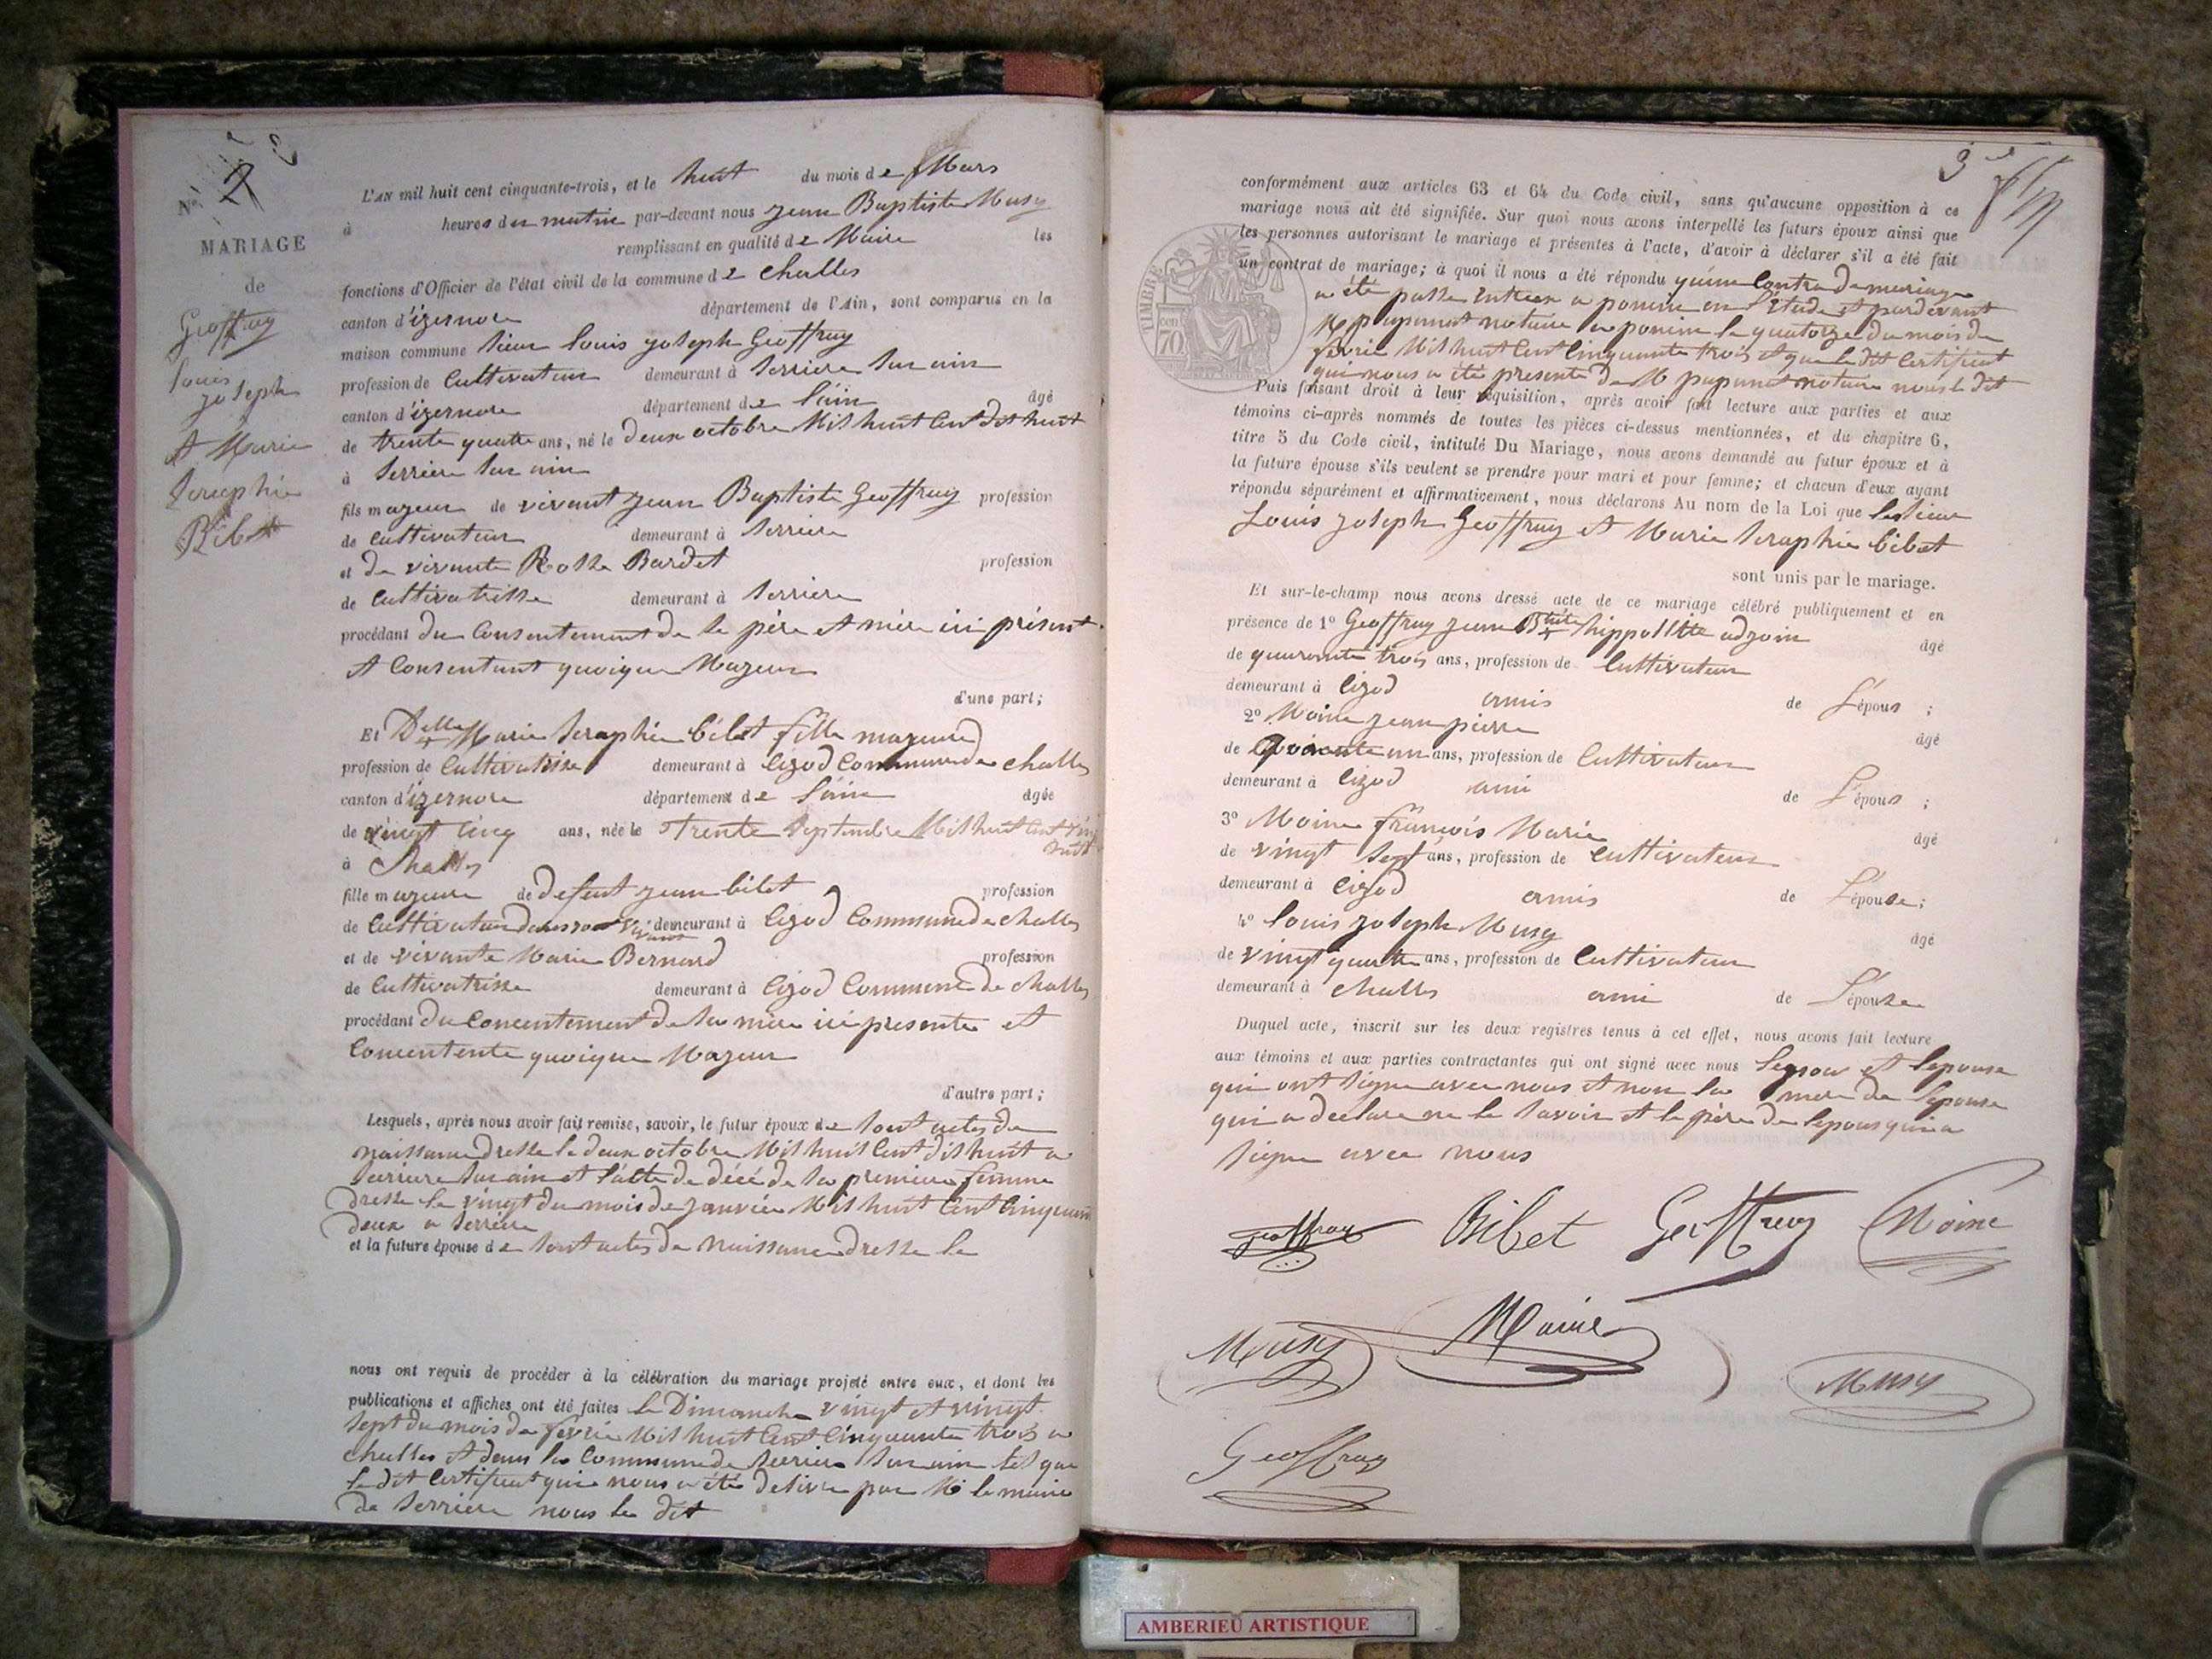 No. 2
MARIAGE
de
Geoffray
Louis
joseph
et Marie
Seraphie
Bibet
L'AN mil huit cent cinquante-trois, et le huit du mois de Mars
à heures du matin par-devant nous jean Baptiste Musy
remplissant en qualité de Maire les
fonctions d'Officier de l'état civil de la commune de challes
canton d'izernore département de l'Ain, sont comparus en la
maison commune sieur louis joseph Geoffray
profession de Cultivateur demeurant à serriere sur ain
canton d'izernore département de l'ain âgé
de trente quatre ans, né le deux octobre Mil huit Cent dit huit
à serriere sur ain
fils majeur de vivant jean Baptiste Geoffray profession
de cultivateur demeurant à serriere
et de vivante Rosse Bardet profession
de Cultivatrisse demeurant à serriere
procédant du Consentement de le père et mère ici présent
et Consentant quoique Majeur
d'une part;
Et Delle Marie Seraphie bibet fille majeure
profession de Cultivatrise demeurant à Cizod Commune de challes
canton d'izernore département de l'ain âgée
de vingt Cinq ans, née le trente septembre Mil huit Cent vingt
à Challes
fille majeure de defunt jean bibet profession
de Cultivateur demeurant à Cizod Commune de challes
et de vivante Marie Bernard profession
de Cultivatrisse demeurant à Cizod Commune de challes
procédant du Concentement de sa mère ici presente et
Concentente quoique Majeur
d'autre part;
Lesquels, après nous avoir fait remise, savoir, le futur époux de sont actes de
naissance dresse le deux octobre Mil huit Cent dit huit a
serriere sur ain et l'acte de décé de sa premiere femme
dresse le vingt du mois de janvier Mil huit Cent Cinquante
deux a serriere
et la future épouse de sont actes de naissance dresse le
nous ont requis de procéder à la célébration du mariage projeté entre eux, et dont les
publications et affiches ont été faites le Dimanche vingt et vingt
sept du mois de fevrie Mil huit Cent Cinquante trois a
challes et dans la Commune de serriere sur ain tel que
le dit Certificat qui nous a été delivre par Mr le maire
de serriere nous le dit
3
conformément aux articles 63 et 64 du Code civil, sans qu'aucune opposition à ce
mariage nous ait été signifiée. Sur quoi nous avons interpellé les futurs époux ainsi que
les personnes autorisant le mariage et présentes à l'acte, d'avoir à déclarer s'il a été fait
un contrat de mariage; à quoi il nous a été répondu qu'une Contra de mariage
TIMBRE
70
a été passe entreux a poncin en l'étude et pardevant
Mr papunat notaire a poncin le quatorze du mois de
fevrie Mil huit Cent Cinquante trois et que le dit Certificat
qui nous a été presente de M papunat notaire nous le dit
Puis faisant droit à leur réquisition, après avoir fait lecture aux parties et aux
témoins ci-après nommés de toutes les pièces ci-dessus mentionnées, et du chapitre 6,
titre 5 du Code civil, intitulé Du Mariage, nous avons demandé au futur époux et à
la future épouse s'ils veulent se prendre pour mari et pour femme; et chacun d'eux ayant
répondu séparément et affirmativement, nous déclarons Au nom de la Loi que le sieur
Louis joseph Geoffray et Marie Seraphie bibet
sont unis par le mariage.
Et sur-le-champ nous avons dressé acte de ce mariage célébré publiquement et en
présence de 1º Geoffray jean Btiste hippollitte adjoin âgé
de quarante trois ans, profession de Cultivateur
demeurant à Cizod amis de L'époux ;
2º Moine jean pierre âgé
de un ans, profession de Cultivateur
demeurant à Cizod ami de L'époux ;
3º Moine françois Marie âgé
de vingt sept ans, profession de Cultivateur
demeurant à Cizod amis de L'épouse;
4º louis joseph Musy âgé
de vingt quatre ans, profession de Cultivateur
demeurant à challes ami de L'épouse
Duquel acte, inscrit sur les deux registres tenus à cet effet, nous avons fait lecture
aux témoins et aux parties contractantes qui ont signé avec nous l'epoux et lepouse
qui ont signe avec nous et non la mere de lepouse
qui a declare ne le savoir et le père de lepous qui a
signe avec nous
Geoffray Bibet Geoffray Moine
Musy Moine Musy
Geoffray
AMBERIEU ARTISTIQUE